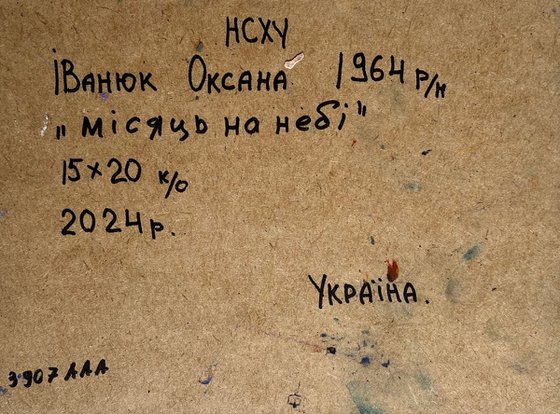 НСХУ
Іванюк Оксана 1964 р/н
„місяць на небі"
15×20 к/о
2024р.
Україна.
3907ААА